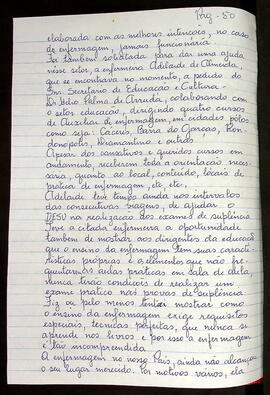 Pag - 50
elaborada com as melhores intenções, no caso
de enfermagem, jamais funcionária
Foi também solicitada para dar uma ajuda
nesse setor, a enfermeira Adelaide de Almeida,
que se encontrava no momento, a pedido do
Snr. Secretário de Educação e Cultura -
Dr. Hélio Palma de Arruda, colaborando com
o setor educação, dirigindo quatro cursos
de Auxiliar de enfermagem, em cidades polos
como seja: Cáceres, Barra do Garças, Ron-
donópolis, Diamantino e outras
Apesar dos cansativos e queridos cursos em
andamento, receberam toda a orientação neces-
sária, quanto ao local, conteúdo, locais de
prática de enfermagem, etc, etc,
Adelaide teve tempo ainda nos intervalos
das consecutivas viagens, de ajudar o
DESU na realização dos exames de suplência
Teve a citada enfermeira a oportunidade
também de mostrar aos dirigentes da educação
que o ensino da enfermagem tem suas caracte-
rísticas próprias e o elemento que não fre
quentar as aulas práticas em sala de aula,
nunca terão condições de realizar um
exame prático nas provas de suplência.
Fiz ou pelo menos tentei mostrar como
o ensino da enfermagem exige requisitos
especiais, técnicas perfeitas, que nunca se
aprende nos livros e por isso a enfermagem
é tão incompreendida.
A enfermagem no nosso País, ainda não alcançou
o seu lugar merecido. Por motivos vários, ela